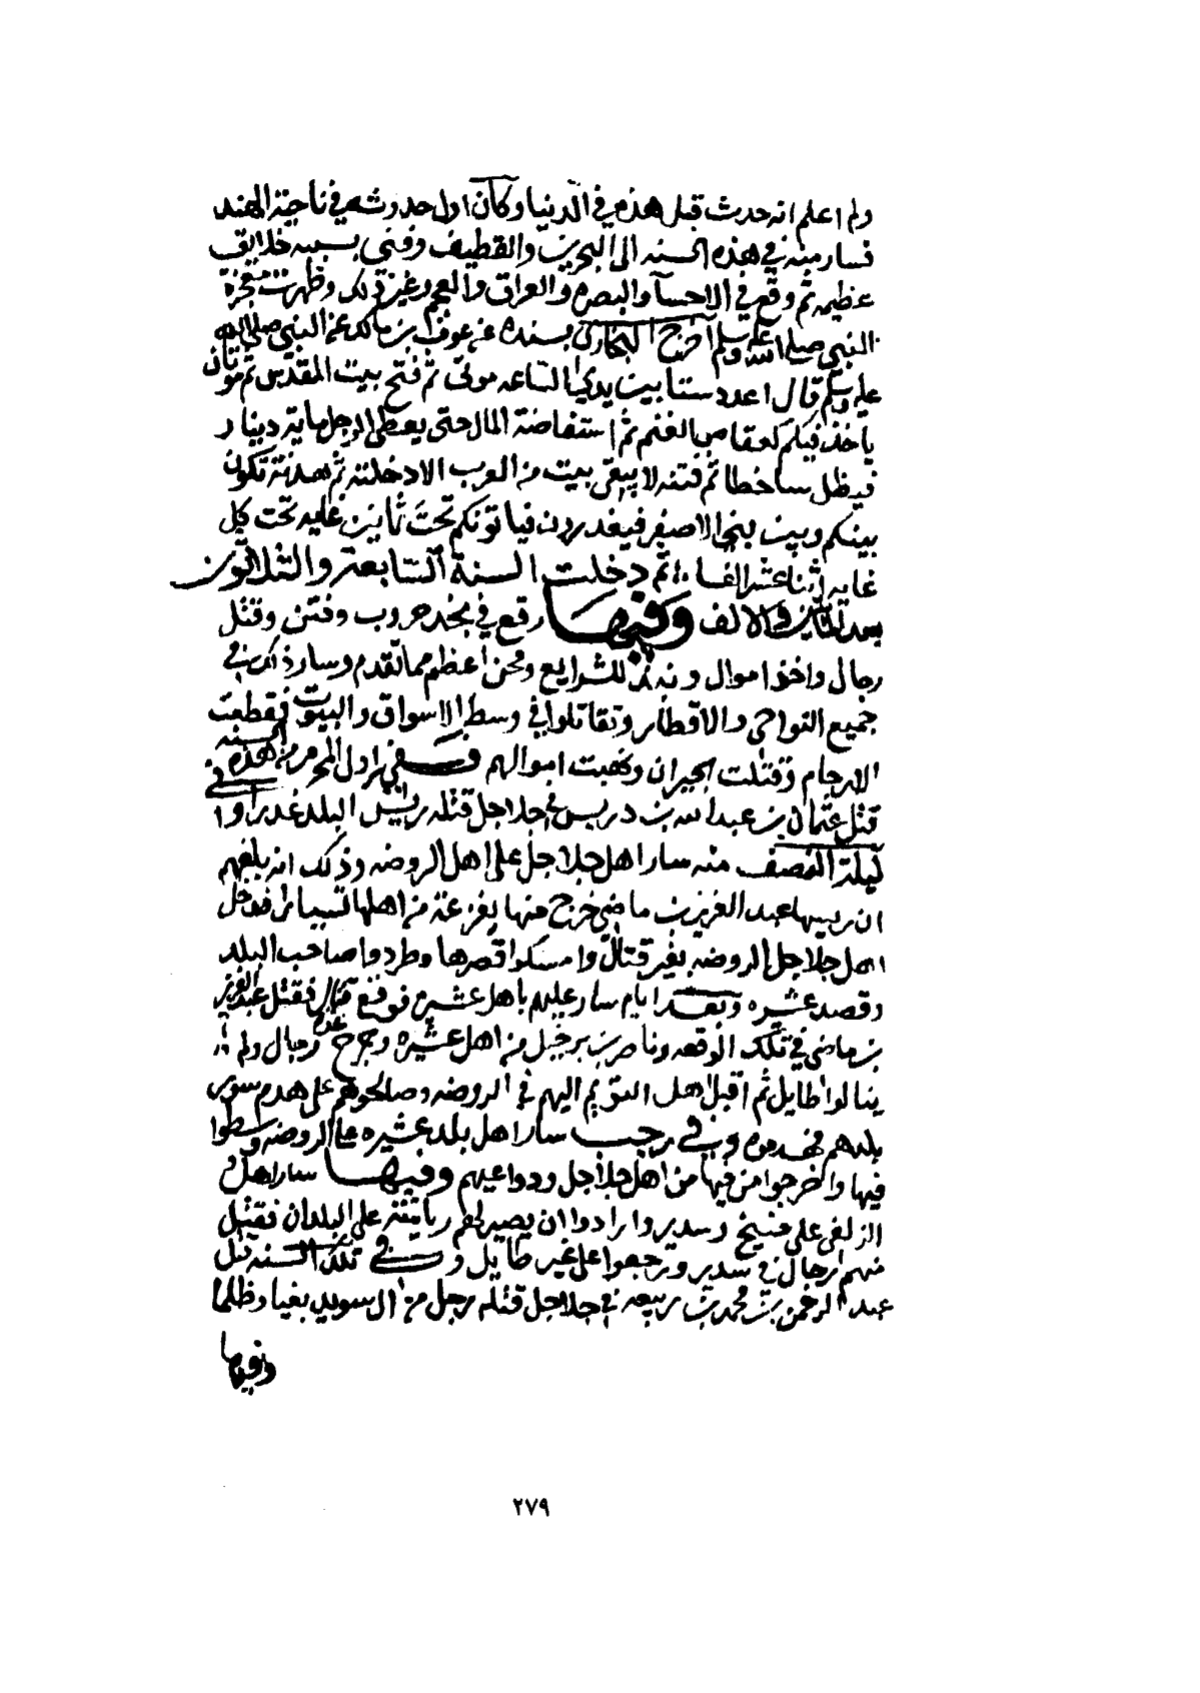 ولم اعلم انه حدث قبل هذه في الدنيا وكان اول حدوثه في ناحية الهند
فسار منه في هذه السنه الى البحرين والقطيف وفنى بسببه خلايق
عظيمه ثم وقع في الاحسا والبصره والعراق والعجم وغير ذلك وظهرت معجزة
النبي صلى الله عليه وسلم اخرج البخاري بسنده عن عوف بن مالك عن النبي صلى الله
عليه وسلم قال اعدد ستا بين يدي الساعه موتى ثم فتح بيت المقدس ثم موتان
ياخذ فيكم كعقاص الغنم ثم استفاضة المال حتى يعطى الرجل ماية دينار
فيظل ساخطا ثم فتنه لا يبقى بيت من العرب الا دخلته ثم هدنة تكون
بينكم وبين بني الاصفر فيغدرون فياتونكم تحت ثمانين غايه تحت كل
غايه اثنا عشر الفا ثم دخلت السنة السابعة والثلاثون
بعد المائتين والالف وفيها وقع في نجد حروب وفتن وقتل
رجال واخذ اموال ونبذ للشرايع ومحن اعظم مما تقدم وسار ذلك في
جميع النواحي والاقطار وتقاتلوا في وسط الاسواق والبيوت فقطعت
الارحام وقتلت الجيران ونهبت اموالهم ففي اول المحرم من هذه السنه
قتل عثمان بن عبدالله بن دريس في جلاجل قتله رييس البلد غدرا وفي
ليلة النصف منه سار اهل جلاجل على اهل الروضه وذلك انه بلغهم
ان رييسها عبد العزيز بن ماضي خرج منها بفزعة من اهلها فدخل
اهل جلاجل الروضه بغير قتال وامسكوا قصرها وطردوا صاحب البلد
وقصد عشيره وبعد ايام سار عليهم باهل عشيره فوقع قتال فقتل عبد العزيز
بن ماضي في تلك الوقعه وناصر بن برجيل من اهل عشيره وجرح عدة رجال ولم
ينالوا طايل ثم اقبل اهل التويم اليهم في الروضه وصالحوهم على هدم سور
بلدهم فهدموه وفي رجب سار اهل بلد عشيره على الروضه وسطوا
فيها واخرجوا من فيها من اهل جلاجل ودواعيهم وفيها سار اهل
الزلفي على منيخ وسدير وارادوا ان يصير لهم رياسة على البلدان فقتل
منهم رجال في سدير ورجعوا على غير طايل وفي تلك السنه قتل
عبد الرحمن بن محمد بن ربيعه في جلاجل قتله رجل من ال سويد بغيا وظلما
وفيها
٢٧٩